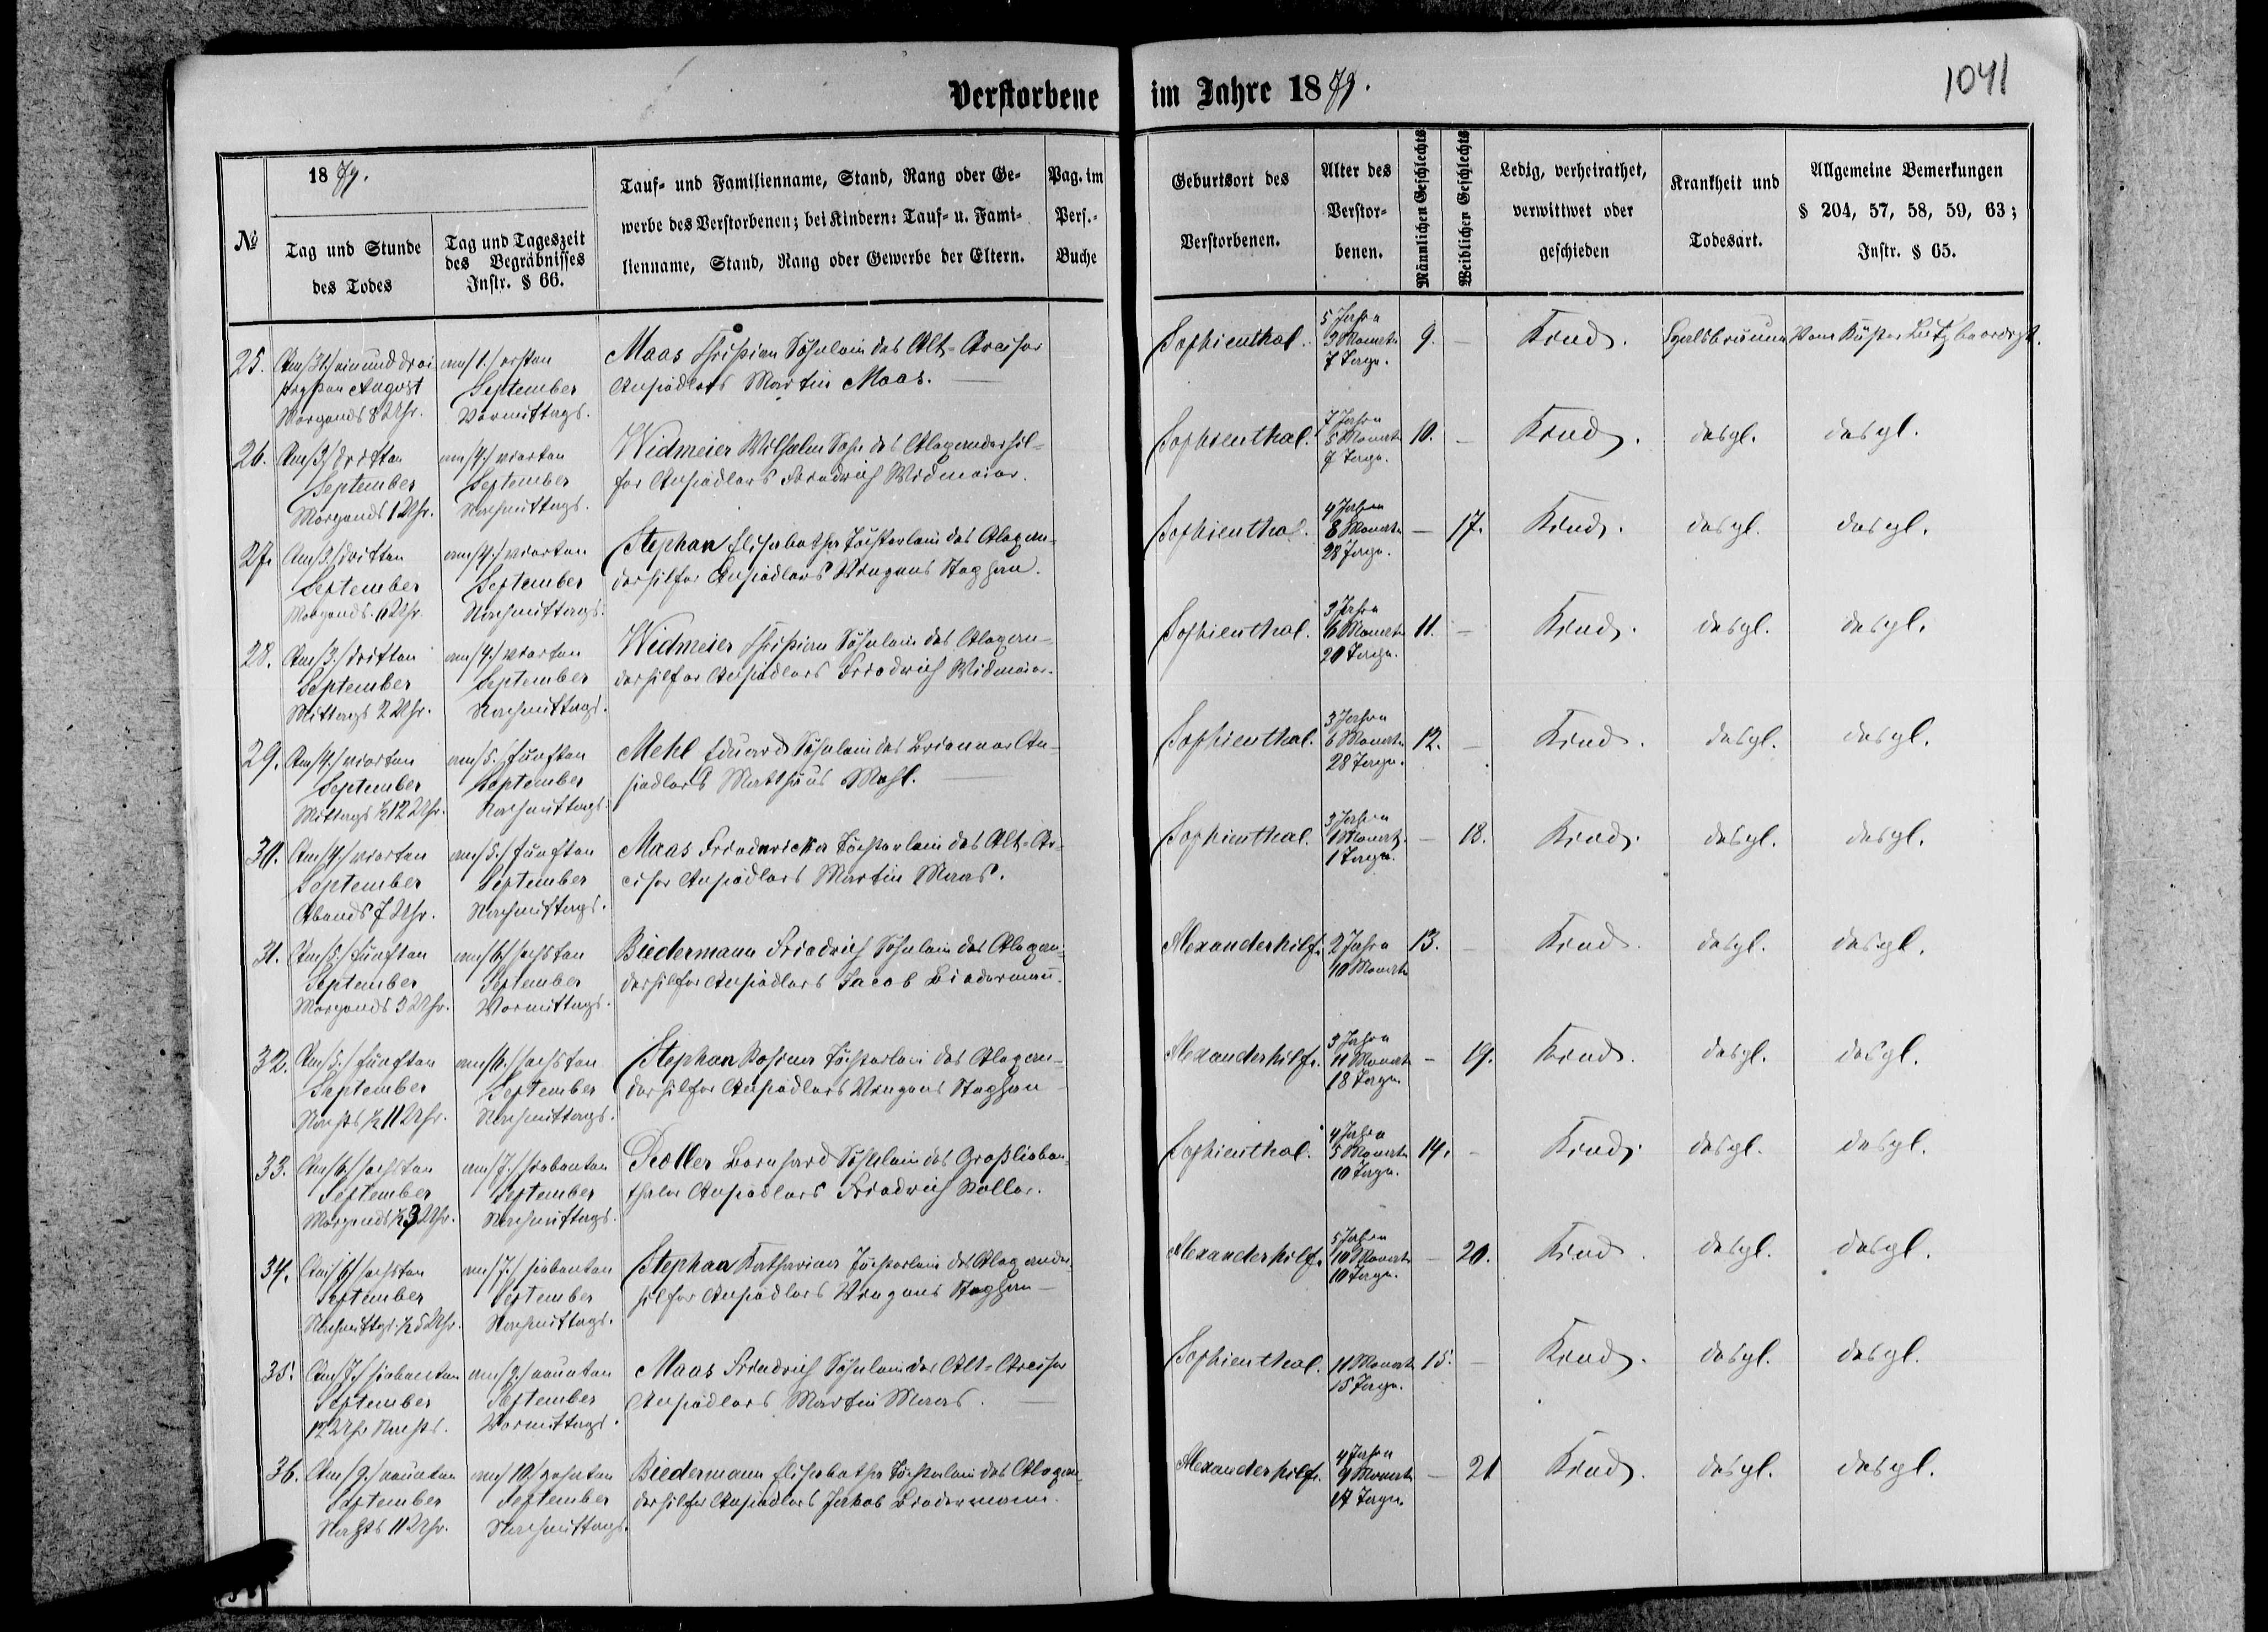 Verstorbene im Jahre 1879.
1041
1879.
№
Tag und Stunde
des Todes
Tag und Tageszeit
des Begräbnisses
Instr. § 66.
Tauf- und Familienname, Stand, Rang oder Ge-
werbe des Verstorbenen; bei Kindern: Tauf- u. Fami-
lienname, Stand, Rang oder Gewerbe der Eltern.
Pag. im
Pers.-
Buche
Geburtsort des
Verstorbenen.
Alter des
Verstor-
benen.
Männlichen Geschlechts
Weiblichen Geschlechts
Ledig, verheirathet,
verwittwet oder
geschieden
Krankheit und
Todesart.
Allgemeine Bemerkungen
§ 204, 57, 58, 59, 63;
Instr. § 65.
25.
Am 31./ einunddrei
ßigsten August
Morgends 8 Uhr.
am 1./ ersten
September
Vormittags.
Maas Christian Söhnlein des Alt-Arciser
Ansiedlers Martin Maas. —
Sophienthal.
5 Jahre
3 Monate
7 Tage.
9.
—
Kind.
Halsbräune
Vom Küster Lutz beerdigt.
26.
Am 3./ dritten
September
Morgends 1 Uhr.
am 4./ vierten
September
Nachmittags.
Widmeier Wilhelm Sohn des Alexanderhil-
fer Ansiedlers Friedrich Widmeier.
Sophienthal.
7 Jahre
5 Monate
7 Tage.
10.
—
Kind.
desgl.
desgl.
27.
Am 3./ dritten
September
Morgends 11 Uhr.
am 4./ vierten
September
Nachmittags.
Stephan Elisabetha Töchterlein des Alexan-
derhilfer Ansiedlers Stephan.
Sophienthal.
4 Jahre
8 Monate
28 Tage.
—
17.
Kind.
desgl.
desgl.
28.
Am 3./ dritten
September
Mittags 2 Uhr.
am 4./ vierten
September
Nachmittags.
Widmeier Christian Söhnlein des Alexan-
derhilfer Ansiedlers Friedrich Widmeier.
Sophienthal.
3 Jahre
6 Monate
20 Tage.
11.
—
Kind.
desgl.
desgl.
29.
Am 4./ vierten
September
Mittags ½12 Uhr.
am 5./ fünften
September
Nachmittags.
Mehl Eduard Söhnlein des Brienner An-
siedlers Matthäus Mehl.
Sophienthal.
3 Jahre
6 Monate
28 Tage.
12.
—
Kind.
desgl.
desgl.
30.
Am 4./ vierten
September
Abends 7 Uhr.
am 5./ fünften
September
Nachmittags.
Maas Friedericka Töchterlein des Alt-Ar-
ciser Ansiedlers Martin Maas.
Sophienthal.
3 Jahre
1 Monat
1 Tage.
—
18.
Kind.
desgl.
desgl.
31.
Am 5./ fünften
September
Morgends 3 Uhr.
am 6./ sechsten
September
Vormittags.
Biedermann Friedrich Söhnlein des Alexan-
derhilfer Ansiedlers Jacob Biedermann.
Alexanderhilf.
2 Jahre
10 Monate
13.
—
Kind.
desgl.
desgl.
32.
Am 5./ fünften
September
Nachts ½11 Uhr.
am 6./ sechsten
September
Nachmittags.
Stephan Rosina Töchterlein des Alexan-
derhilfer Ansiedlers Stephan
Alexanderhilf.
3 Jahre
11 Monate
18 Tage.
—
19.
Kind.
desgl.
desgl.
33.
Am 6./ sechsten
September
Morgends ½3 Uhr.
am 7./ siebenten
September
Nachmittags.
Bernhard Söhnlein des Großlieben-
thaler Ansiedlers Friedrich
Sophienthal.
4 Jahre
5 Monate
10 Tage.
14.
—
Kind.
desgl.
desgl.
34.
Am 6./ sechsten
September
Nachmittgs. ½5 Uhr.
am 7./ siebenten
September
Nachmittags.
Stephan Katharina Töchterlein des Alexander-
hilfer Ansiedlers Stephan —
Alexanderhilf.
5 Jahre
10 Monate
10 Tage.
—
20.
Kind.
desgl.
desgl.
35.
Am 7./ siebenten
September
12 Uhr Nachts.
am 9./ neunten
September
Vormittags.
Maas Friedrich Söhnlein des Alt-Arciser
Ansiedlers Martin Maas. —
Sophienthal.
11 Monate
15 Tage.
15.
—
Kind.
desgl.
desgl.
36.
Am 9./ neunten
September
Nachts 11 Uhr.
am 10./ zehnten
September
Nachmittags.
Biedermann Elisabetha Töchterlein des Alexan-
derhilfer Ansiedlers Jakob Biedermann.
Alexanderhilf.
4 Jahre
9 Monate
17 Tage.
—
21
Kind.
desgl.
desgl.